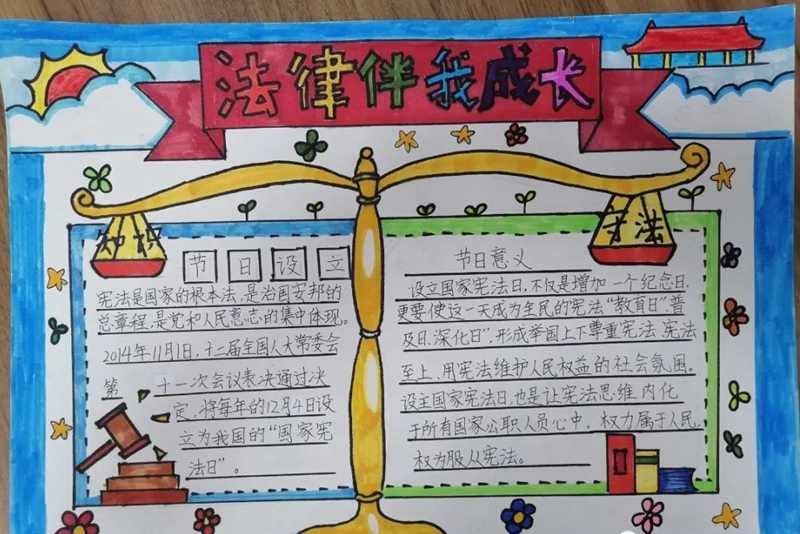 法律伴我成长
知识
守法
节日设立
宪法是国家的根本法,是治国安邦的
总章程,是党和人民意志的集中体现。
2014年11月1日,十二届全国人大常委会
第十一次会议表决通过决
定,将每年的12月4日设
立为我国的“国家宪
法日”。
节日意义
设立国家宪法日,不仅是增加一个纪念日,
更要使这一天成为全民的宪法“教育日”普
及日、深化日”,形成举国上下尊重宪法、宪法
至上、用宪法维护人民权益的社会氛围。
设立国家宪法日,也是让宪法思维内化
于所有国家公职人员心中。权力属于人民,
权为服从宪法。